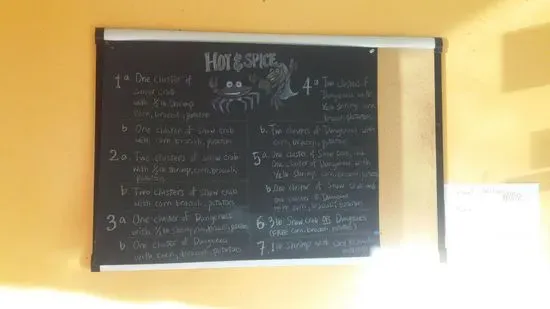 HOT & SPICE
1a One cluster of
Snow crab
with ½ lb shrimp
corn, broccoli, potatoes
b One cluster of Snow crab
with corn, broccoli, potatoes
2a. Two clusters of Snow crab
with ½ lb shrimp, corn, broccoli,
potatoes
b Two clusters of Snow crab
with corn, broccoli, potatoes
3a One cluster of Dungeness
with ½ lb shrimp, corn, broccoli, potatoes
b One cluster of Dungeness
with corn, broccoli, potatoes
4a Two clusters of
Dungeness with
½ lb shrimp, corn
broccoli, potatoes
b. Two clusters of Dungeness with
corn, broccoli, potatoes
5a. One cluster of Snow crab and
One cluster of Dungeness with
½ lb shrimp, corn, broccoli, potatoes
b One cluster of Snow crab and
one cluster of Dungeness
with corn, broccoli, potatoes
6. 3 lb Snow crab OR Dungeness
(FREE corn, broccoli, potatoes)
7. 1 lb shrimp with